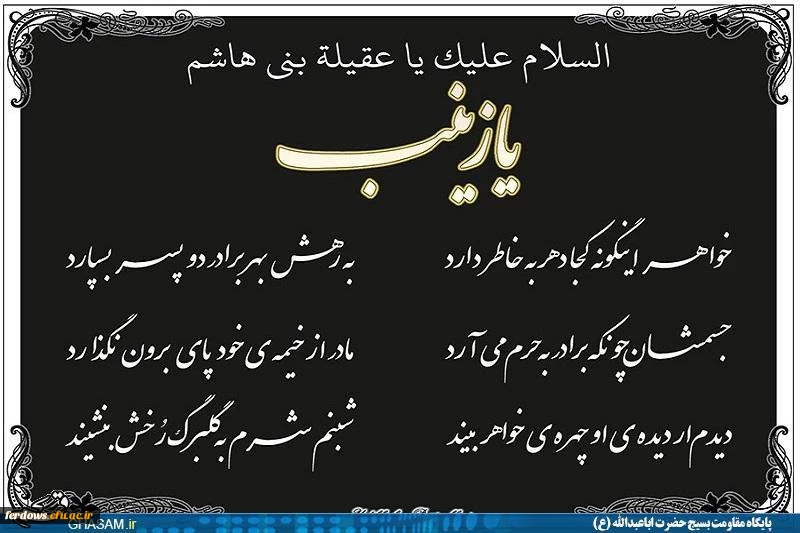 السلام علیك یا عقیلة بنی هاشم
یا زینب
خواهر اینگونه کجا دهر به خاطر دارد
به رهش بهر برادر دو پسر بسپارد
جسمشان چونکه برادر به حرم می آرد
مادر از خیمه ی خود پای برون نگذارد
دیدم ار دیده ی او چهره ی خواهر بیند
شبنم شرم به گلبرگ رُخش بنشیند
ferdows.cfu.ac.ir
GHASAM.ir
پایگاه مقاومت بسیج حضرت اباعبدالله (ع)